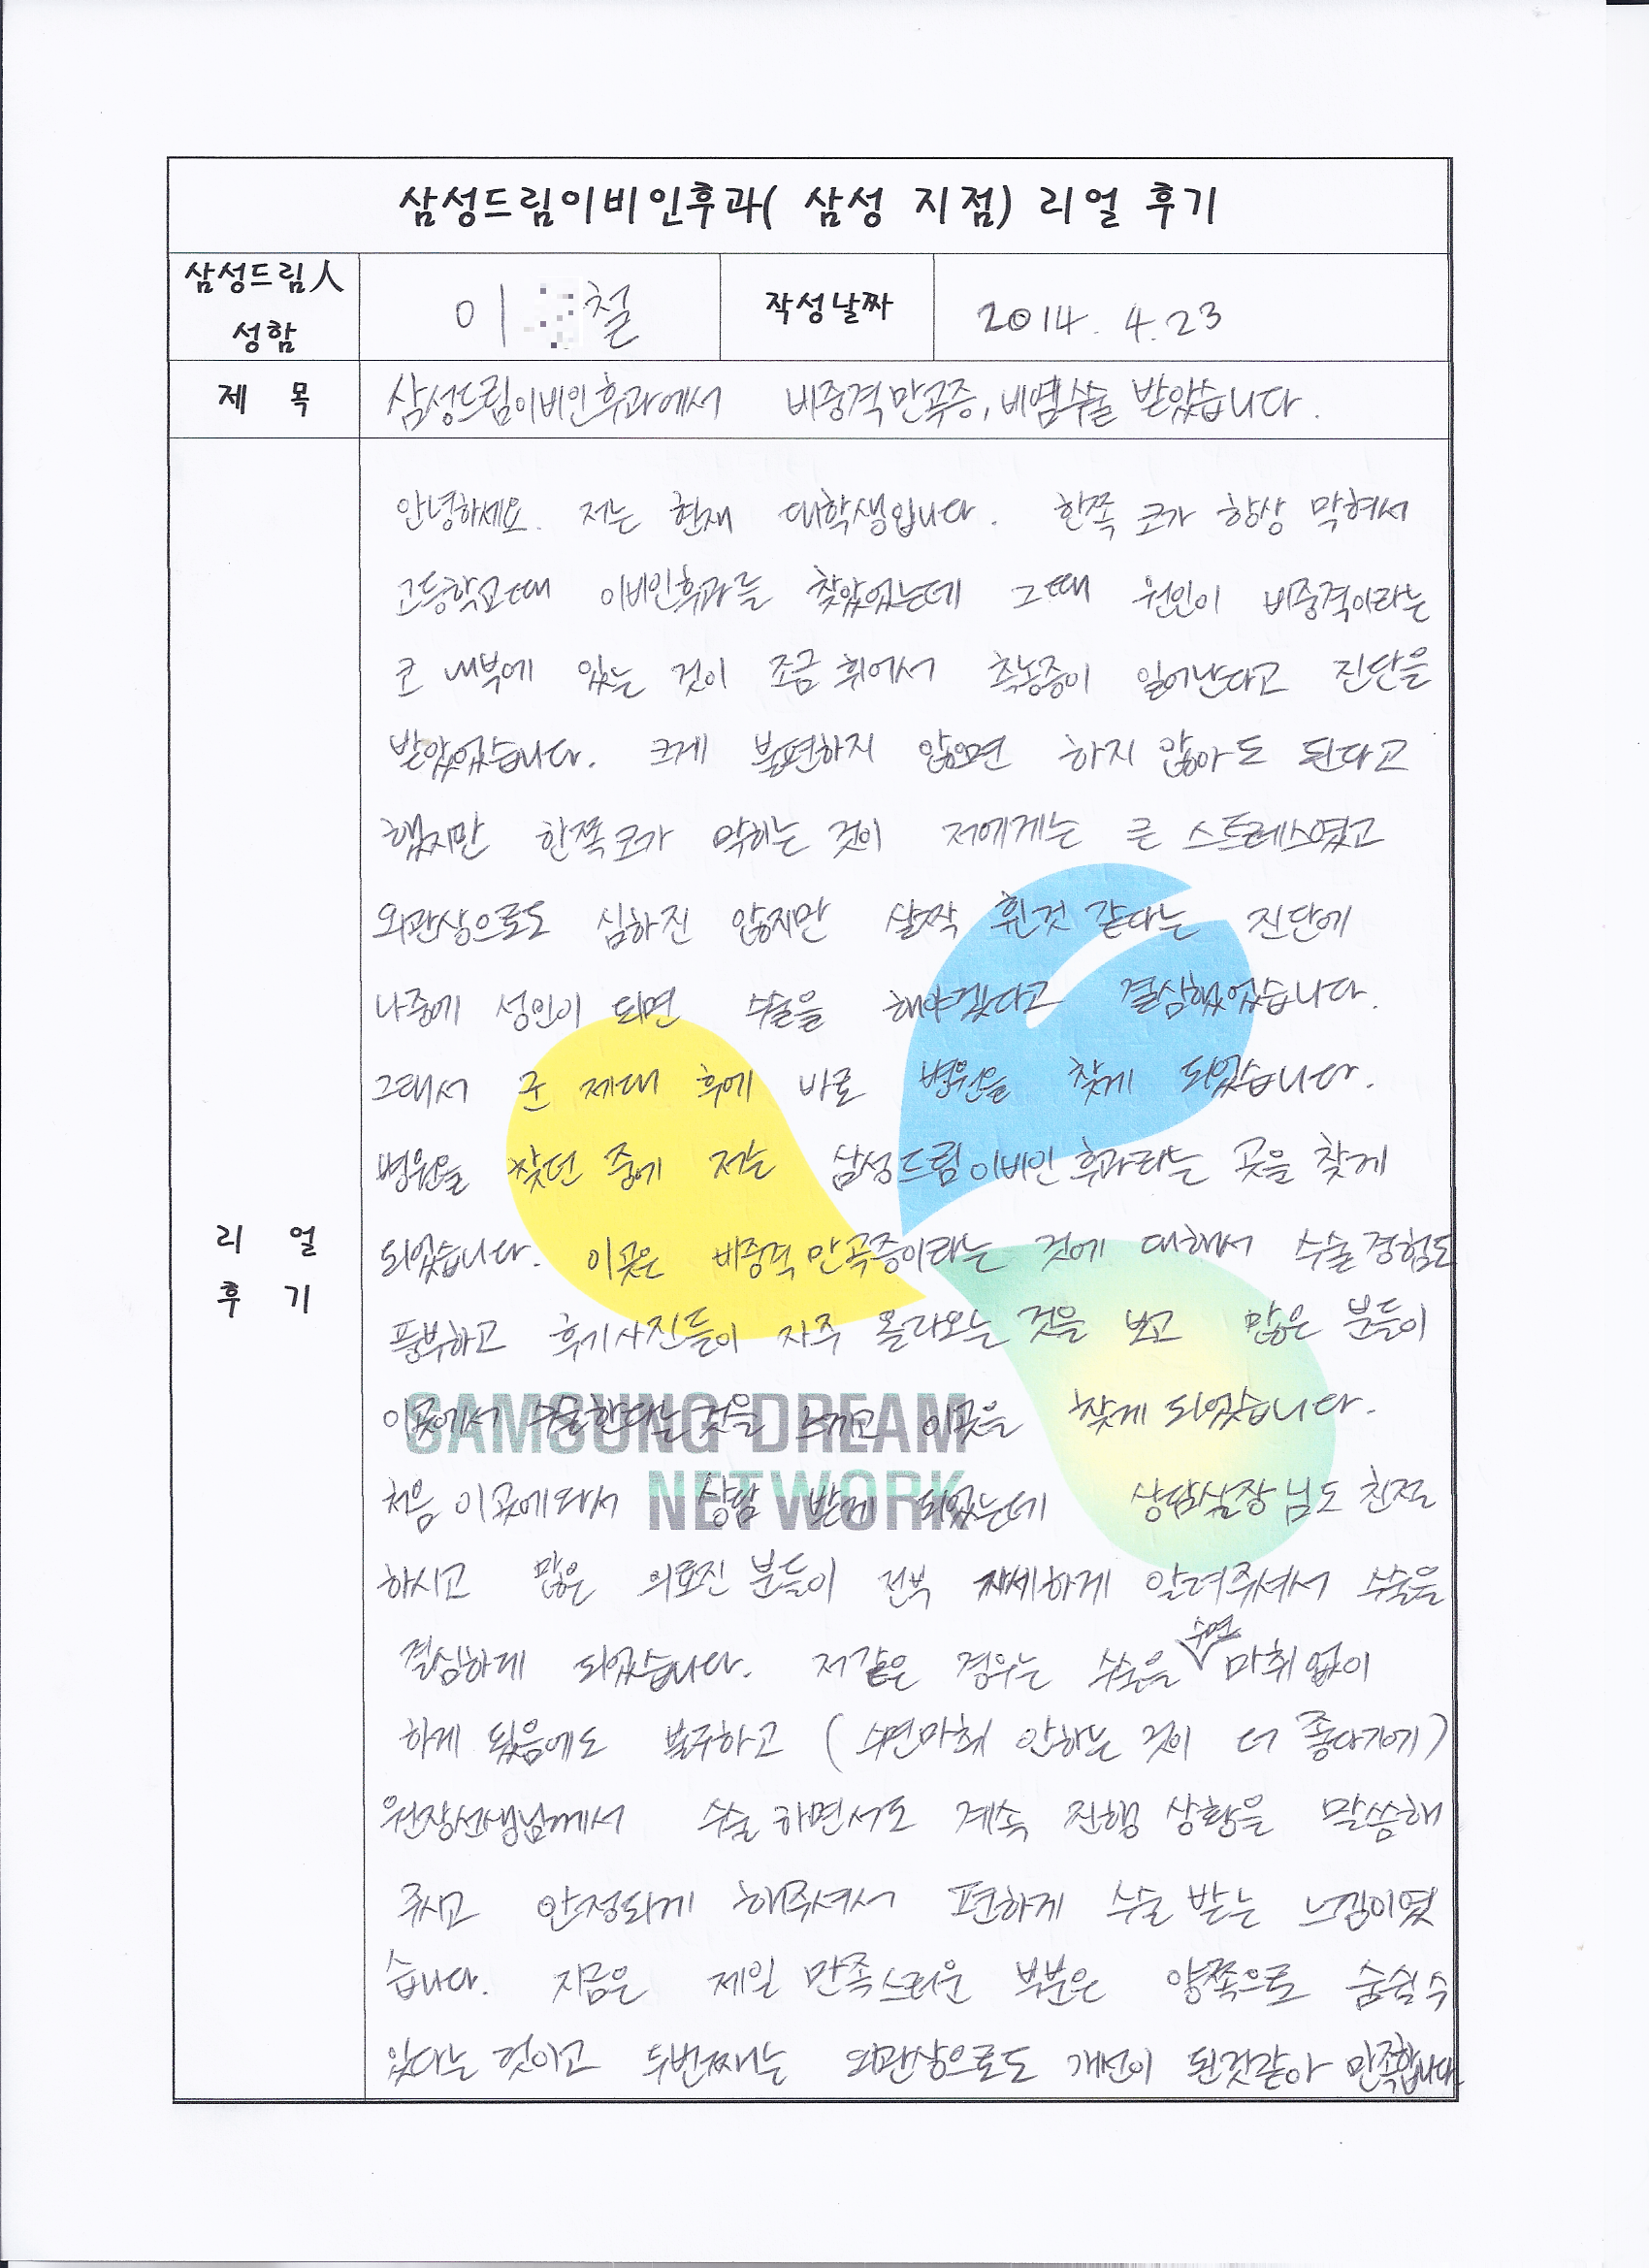 삼성드림이비인후과( 삼성 지점) 리얼 후기
삼성드림人
성함
이 철
작성날짜
2014. 4. 23
제 목
삼성드림이비인후과에서 비중격만곡증, 비염수술 받았습니다.
안녕하세요. 저는 현재 대학생입니다. 한쪽 코가 항상 막혀서
고등학교때 이비인후과를 찾았었는데 그때 원인이 비중격이라는
코 내부에 있는 것이 조금 휘어서 축농증이 일어난다고 진단을
받았었습니다. 크게 불편하지 않으면 하지 않아도 된다고
했지만 한쪽코가 막히는 것이 저에게는 큰 스트레스였고
외관상으로도 심하진 않지만 살짝 휜것 같다는 진단에
나중에 성인이 되면 수술을 해야겠다고 결심했었습니다.
그래서 군 제대 후에 바로 병원을 찾게 되었습니다.
병원을 찾던 중에 저는 삼성드림이비인후과라는 곳을 찾게
되었습니다. 이곳은 비중격만곡증이라는 것에 대해서 수술경험도
풍부하고 후기사진들이 자주 올라오는 것을 보고 많은 분들이
이곳에서 수술한다는것을 느끼고 이곳을 찾게 되었습니다.
처음 이곳에와서 상담 받게 되었는데 상담실장님도 친절
하시고 많은 의료진 분들이 전부 자세하게 알려주셔서 수술을
결심하게 되었습니다. 저같은 경우는 수술을 수면 마취 없이
하게 됬음에도 불구하고 (수면마취 안하는 것이 더 좋다기에)
원장선생님께서 수술 하면서도 계속 진행 상황을 말씀해
주시고 안정되게 해주셔서 편하게 수술 받는 느낌이였
습니다. 지금은 제일 만족스러운 부분은 양쪽으로 숨쉴수
있다는 것이고 두번째는 외관상으로도 개선이 된것같아 만족합니다
리 얼
후 기
SAMSUNG DREAM
NETWORK